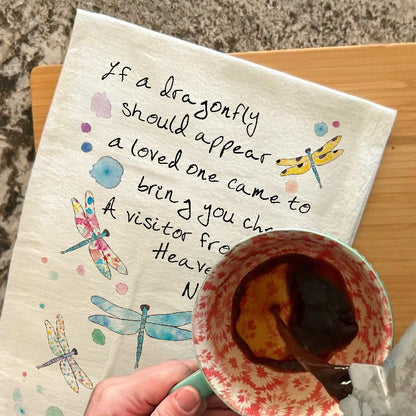 If a dragonfly
should appear
a loved one came to
bring you
A visitor
Heave
N